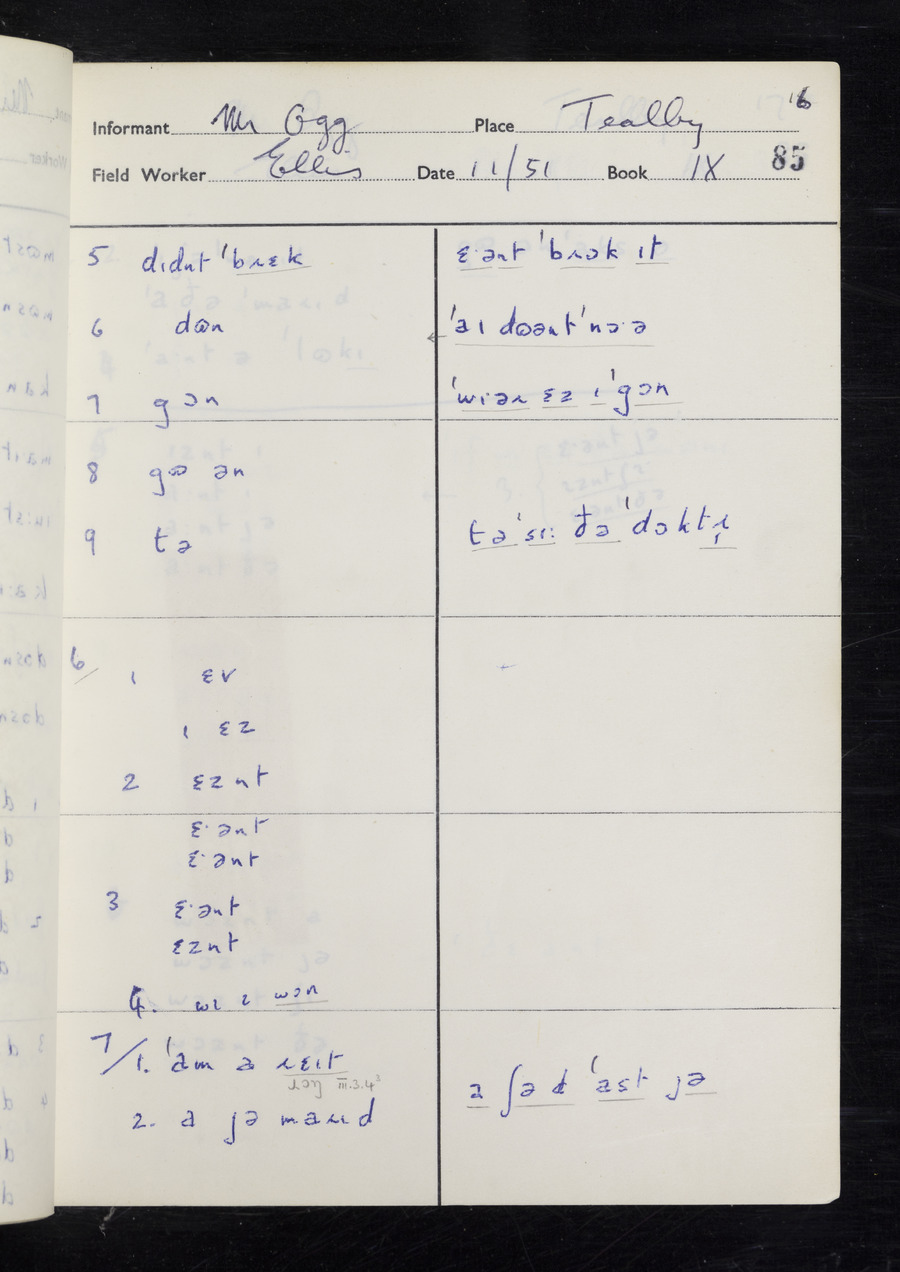 16
Informant Mr Ogg Place Tealby
Field Worker Ellis Date 11/51 Book IX 85
5 dɪdnt ˈbɹɛk ɛ·ənt ˈbɹɔk ɪt
6 dɷn ← ˈaɪ dɷənt ˈnɔ·ə
7 gɔn ˈwɪəɹ ɛz ɪ ˈgɔn
8 gɷ ən
9 tə təˈsɪ: ðə ˈdɔktɹ̩
6/ 1 ɛv
ɪ ɛz
2 ɛznt
ɛ·ənt
ɛ·ənt
3 ɛ·ənt
ɛznt
4. wɪ z wɔn
7/1. ˈam a ɹɛɪt
ɹɔŋ III.3.4³
2. a jə maɹɪd a ʃə d ˈast jə